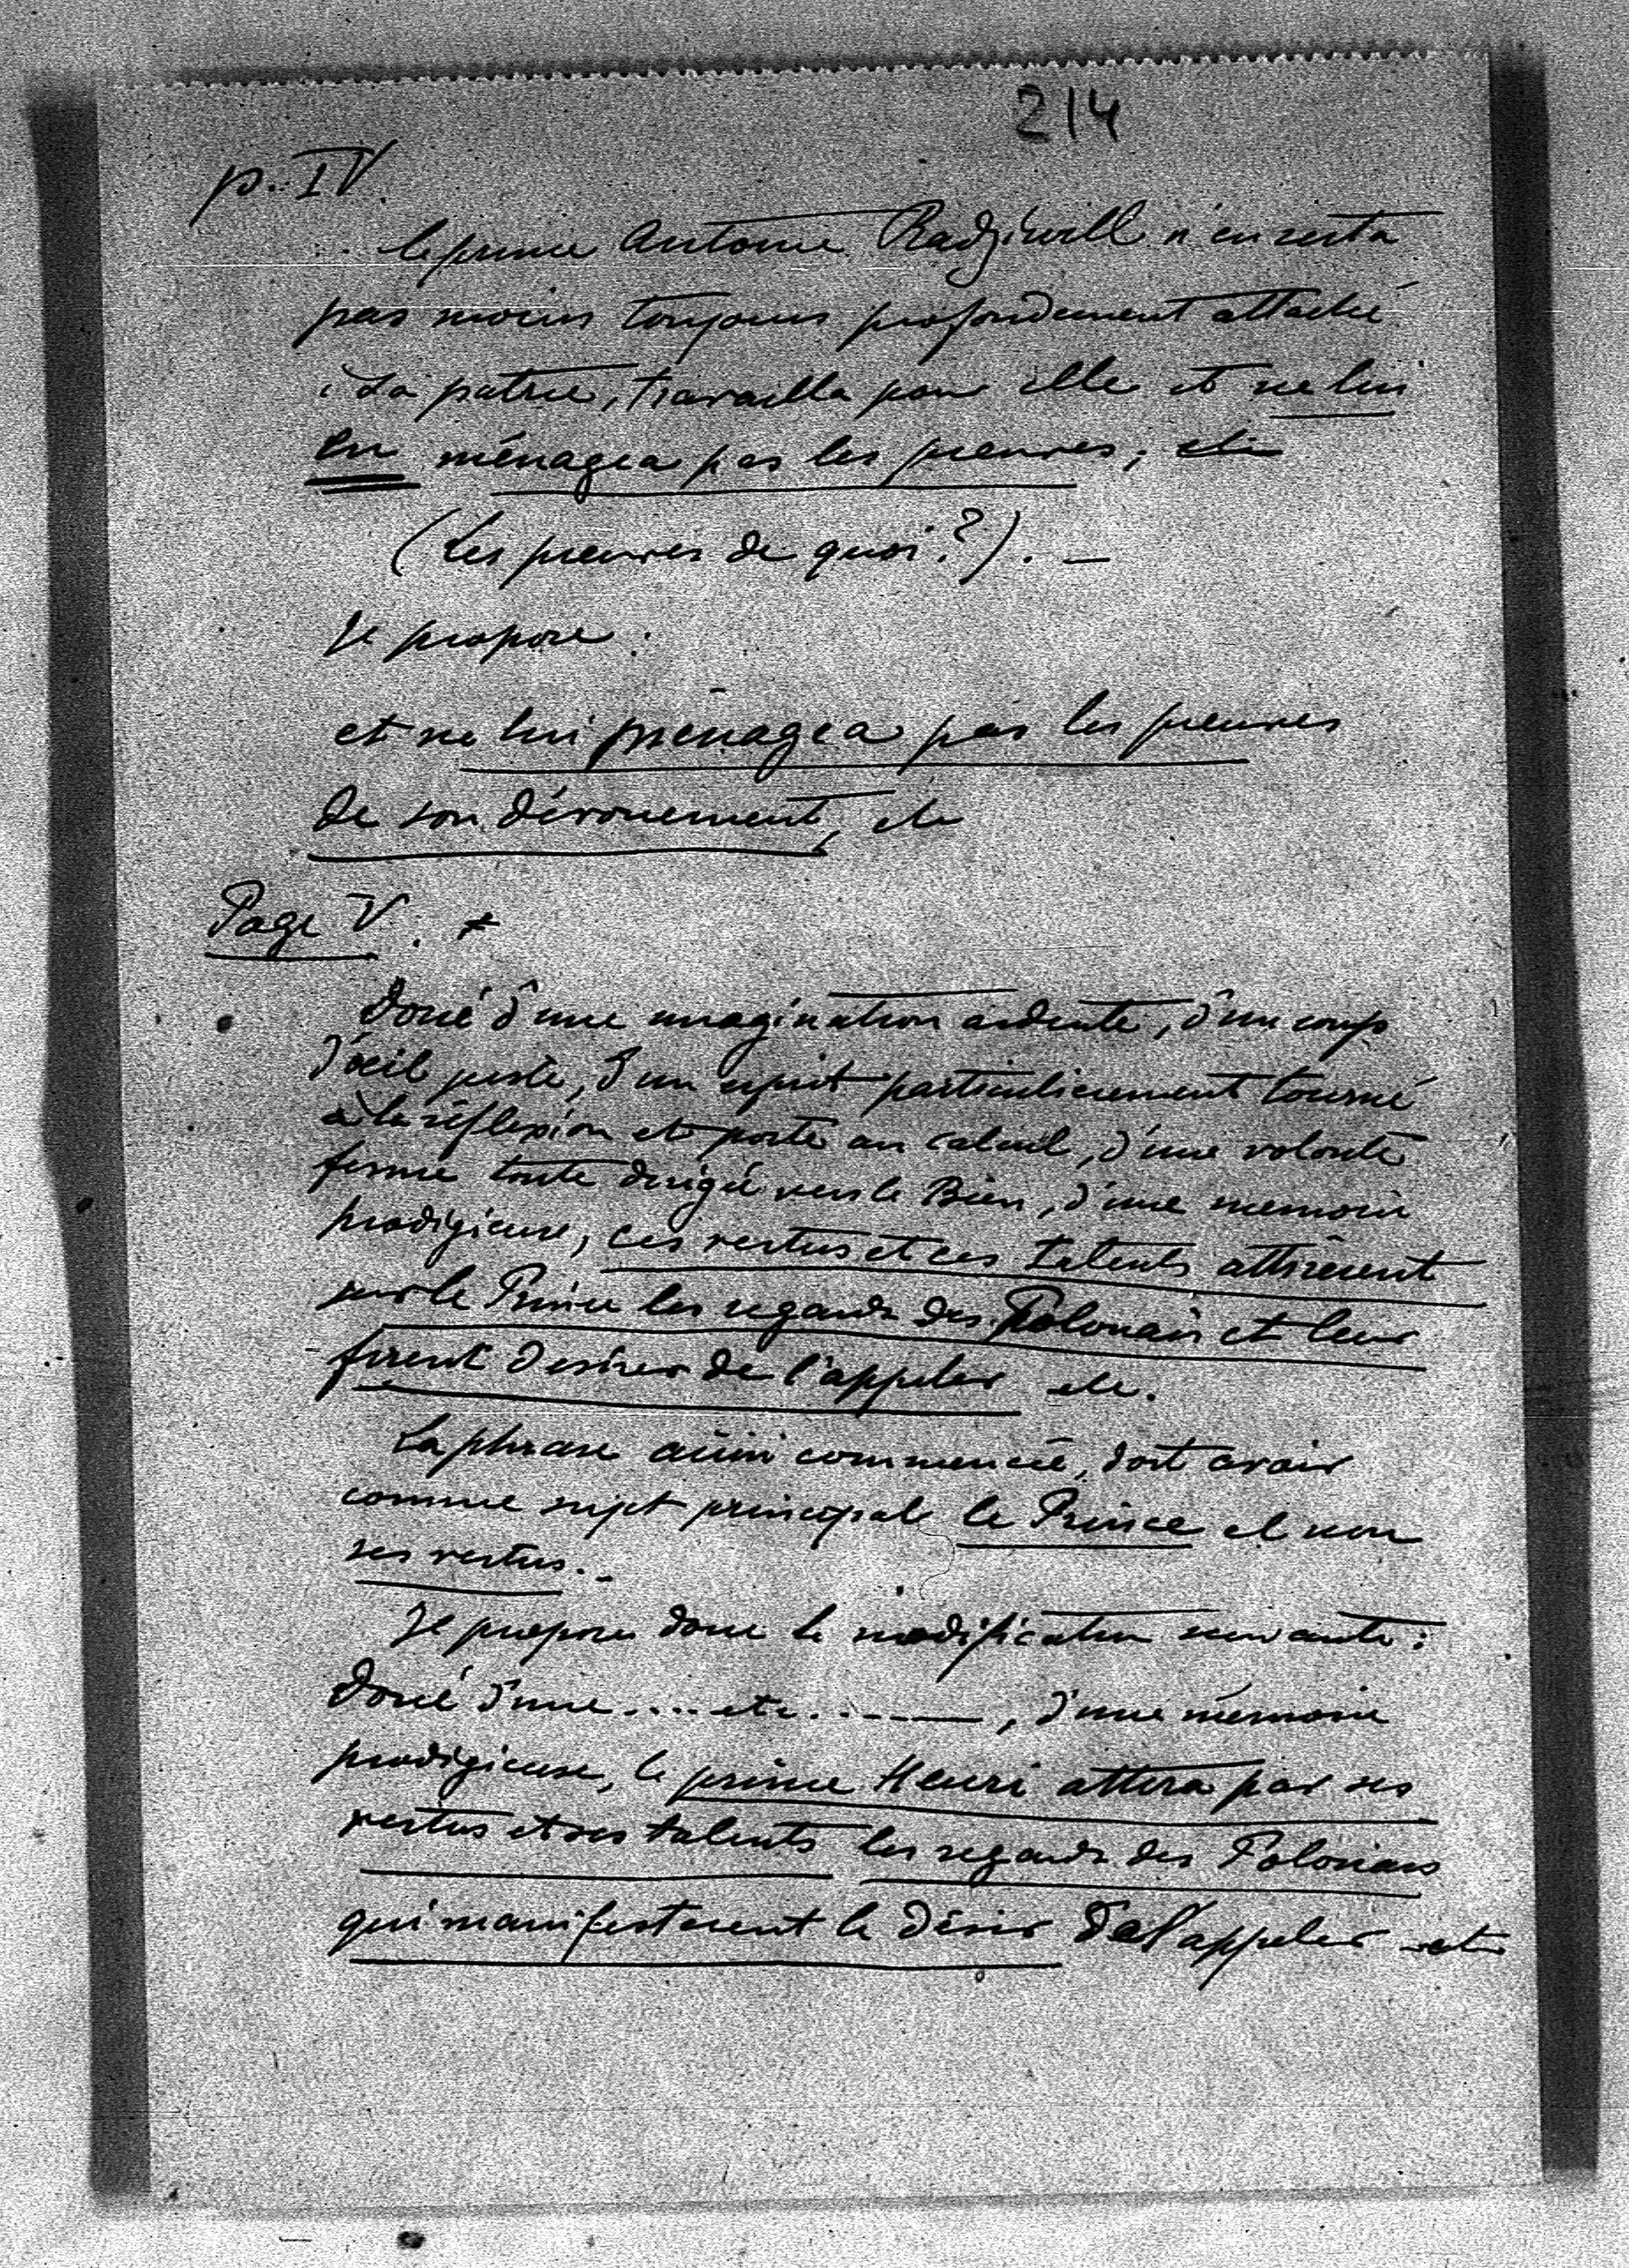 214
p. IV.
le prince Antoine Radziwill n'en resta
pas moins toujours profondement attaché
à sa patrie, travailla pour elle et ne lui
en ménagea pas les preuves ; etc
(Les preuves de quoi ?). —
Je propose :
et ne lui ménagea pas les preuves
de son dévouement, etc
Page V.
Doué d'une imagination ardente, d'un coup
d'oeil juste, d'un esprit particulièrement tourné
à la réflexion et porté au calcul, d'une volonté
ferme toute dirigée vers le Bien, d'une memoire
prodigieuse, ces vertus et ces talents attirèrent
sur le Prince les regards des Polonais et leur
firent désirer de l'appeler etc.
La phrase ainsi commencée, doit avoir
comme sujet principal le Prince et non
ses vertus.
Je propose donc la modification suivante :
Doué d'une .... etc. ......, d'une mémoire
prodigieuse, le prince Henri attira par ses
vertus et ses talents les regards des Polonais
qui manifesterent le désir de l'appeler etc